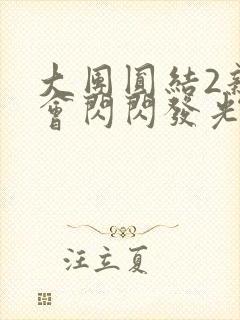 大團圓結2新
會閃閃發光
汪立夏